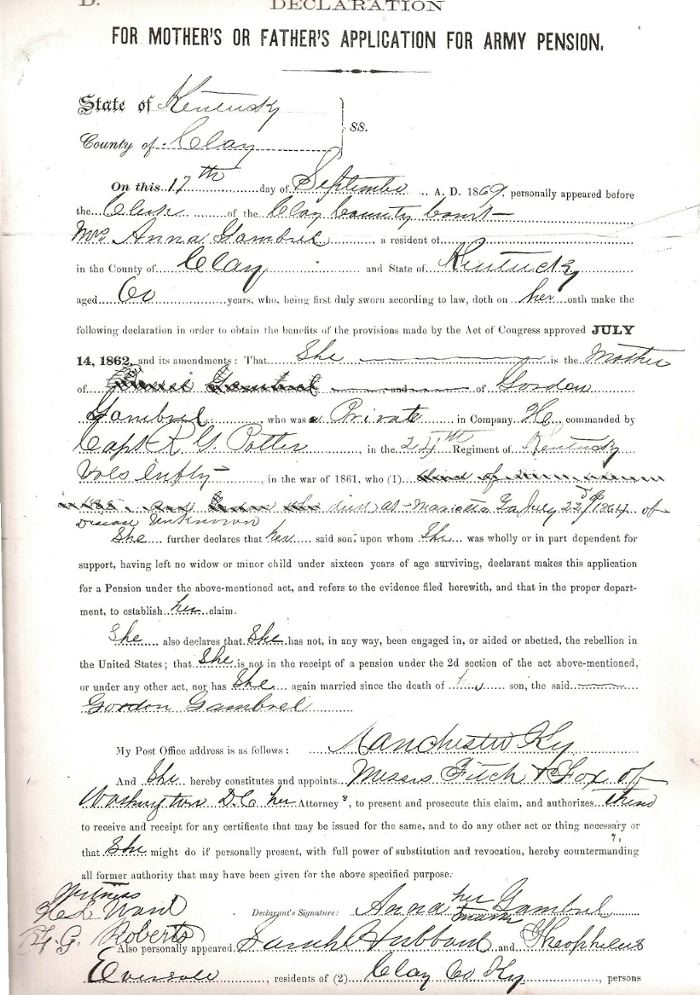 D. DECLARATION
FOR MOTHER'S OR FATHER'S APPLICATION FOR ARMY PENSION.
State of Kentucky
County of Clay } SS.
On this 17th day of September, A. D. 1869, personally appeared before
the Clerk of the Clay County Court
Mrs Anna Gambrel a resident of
in the County of Clay and State of Kentucky
aged 60 years, who, being first duly sworn according to law, doth on her oath make the
following declaration in order to obtain the benefits of the provisions made by the Act of Congress approved JULY
14, 1862, and its amendments: That She is the Mother
of and of Gordon
Gambrel, who was a Private in Company commanded by
Capt R. G. Potter, in the 24th Regiment of Kentucky
Vols Infty, in the war of 1861, who (1)
died at Marietta Ga July 1864 of
Disease Unknown
She further declares that her said son, upon whom She was wholly or in part dependent for
support, having left no widow or minor child under sixteen years of age surviving, declarant makes this application
for a Pension under the above-mentioned act, and refers to the evidence filed herewith, and that in the proper depart-
ment, to establish her claim.
She also declares that She has not, in any way, been engaged in, or aided or abetted, the rebellion in
the United States; that She is not in the receipt of a pension under the 2d section of the act above-mentioned,
or under any other act, nor has She again married since the death of son, the said
Gordon Gambrel
My Post Office address is as follows: Manchester Ky
And She hereby constitutes and appoints Messrs Fitch & Fox of
Washington D.C her Attorneys, to present and prosecute this claim, and authorizes them
to receive and receipt for any certificate that may be issued for the same, and to do any other act or thing necessary or
that She might do if personally present, with full power of substitution and revocation, hereby countermanding
all former authority that may have been given for the above specified purpose.
Witness
Ward Declarant's Signature: Anna her mark Gambrel
G. Roberts Also personally appeared Sarah Hubbard and Theophilus
Eversole, residents of (2) Clay Co Ky, persons